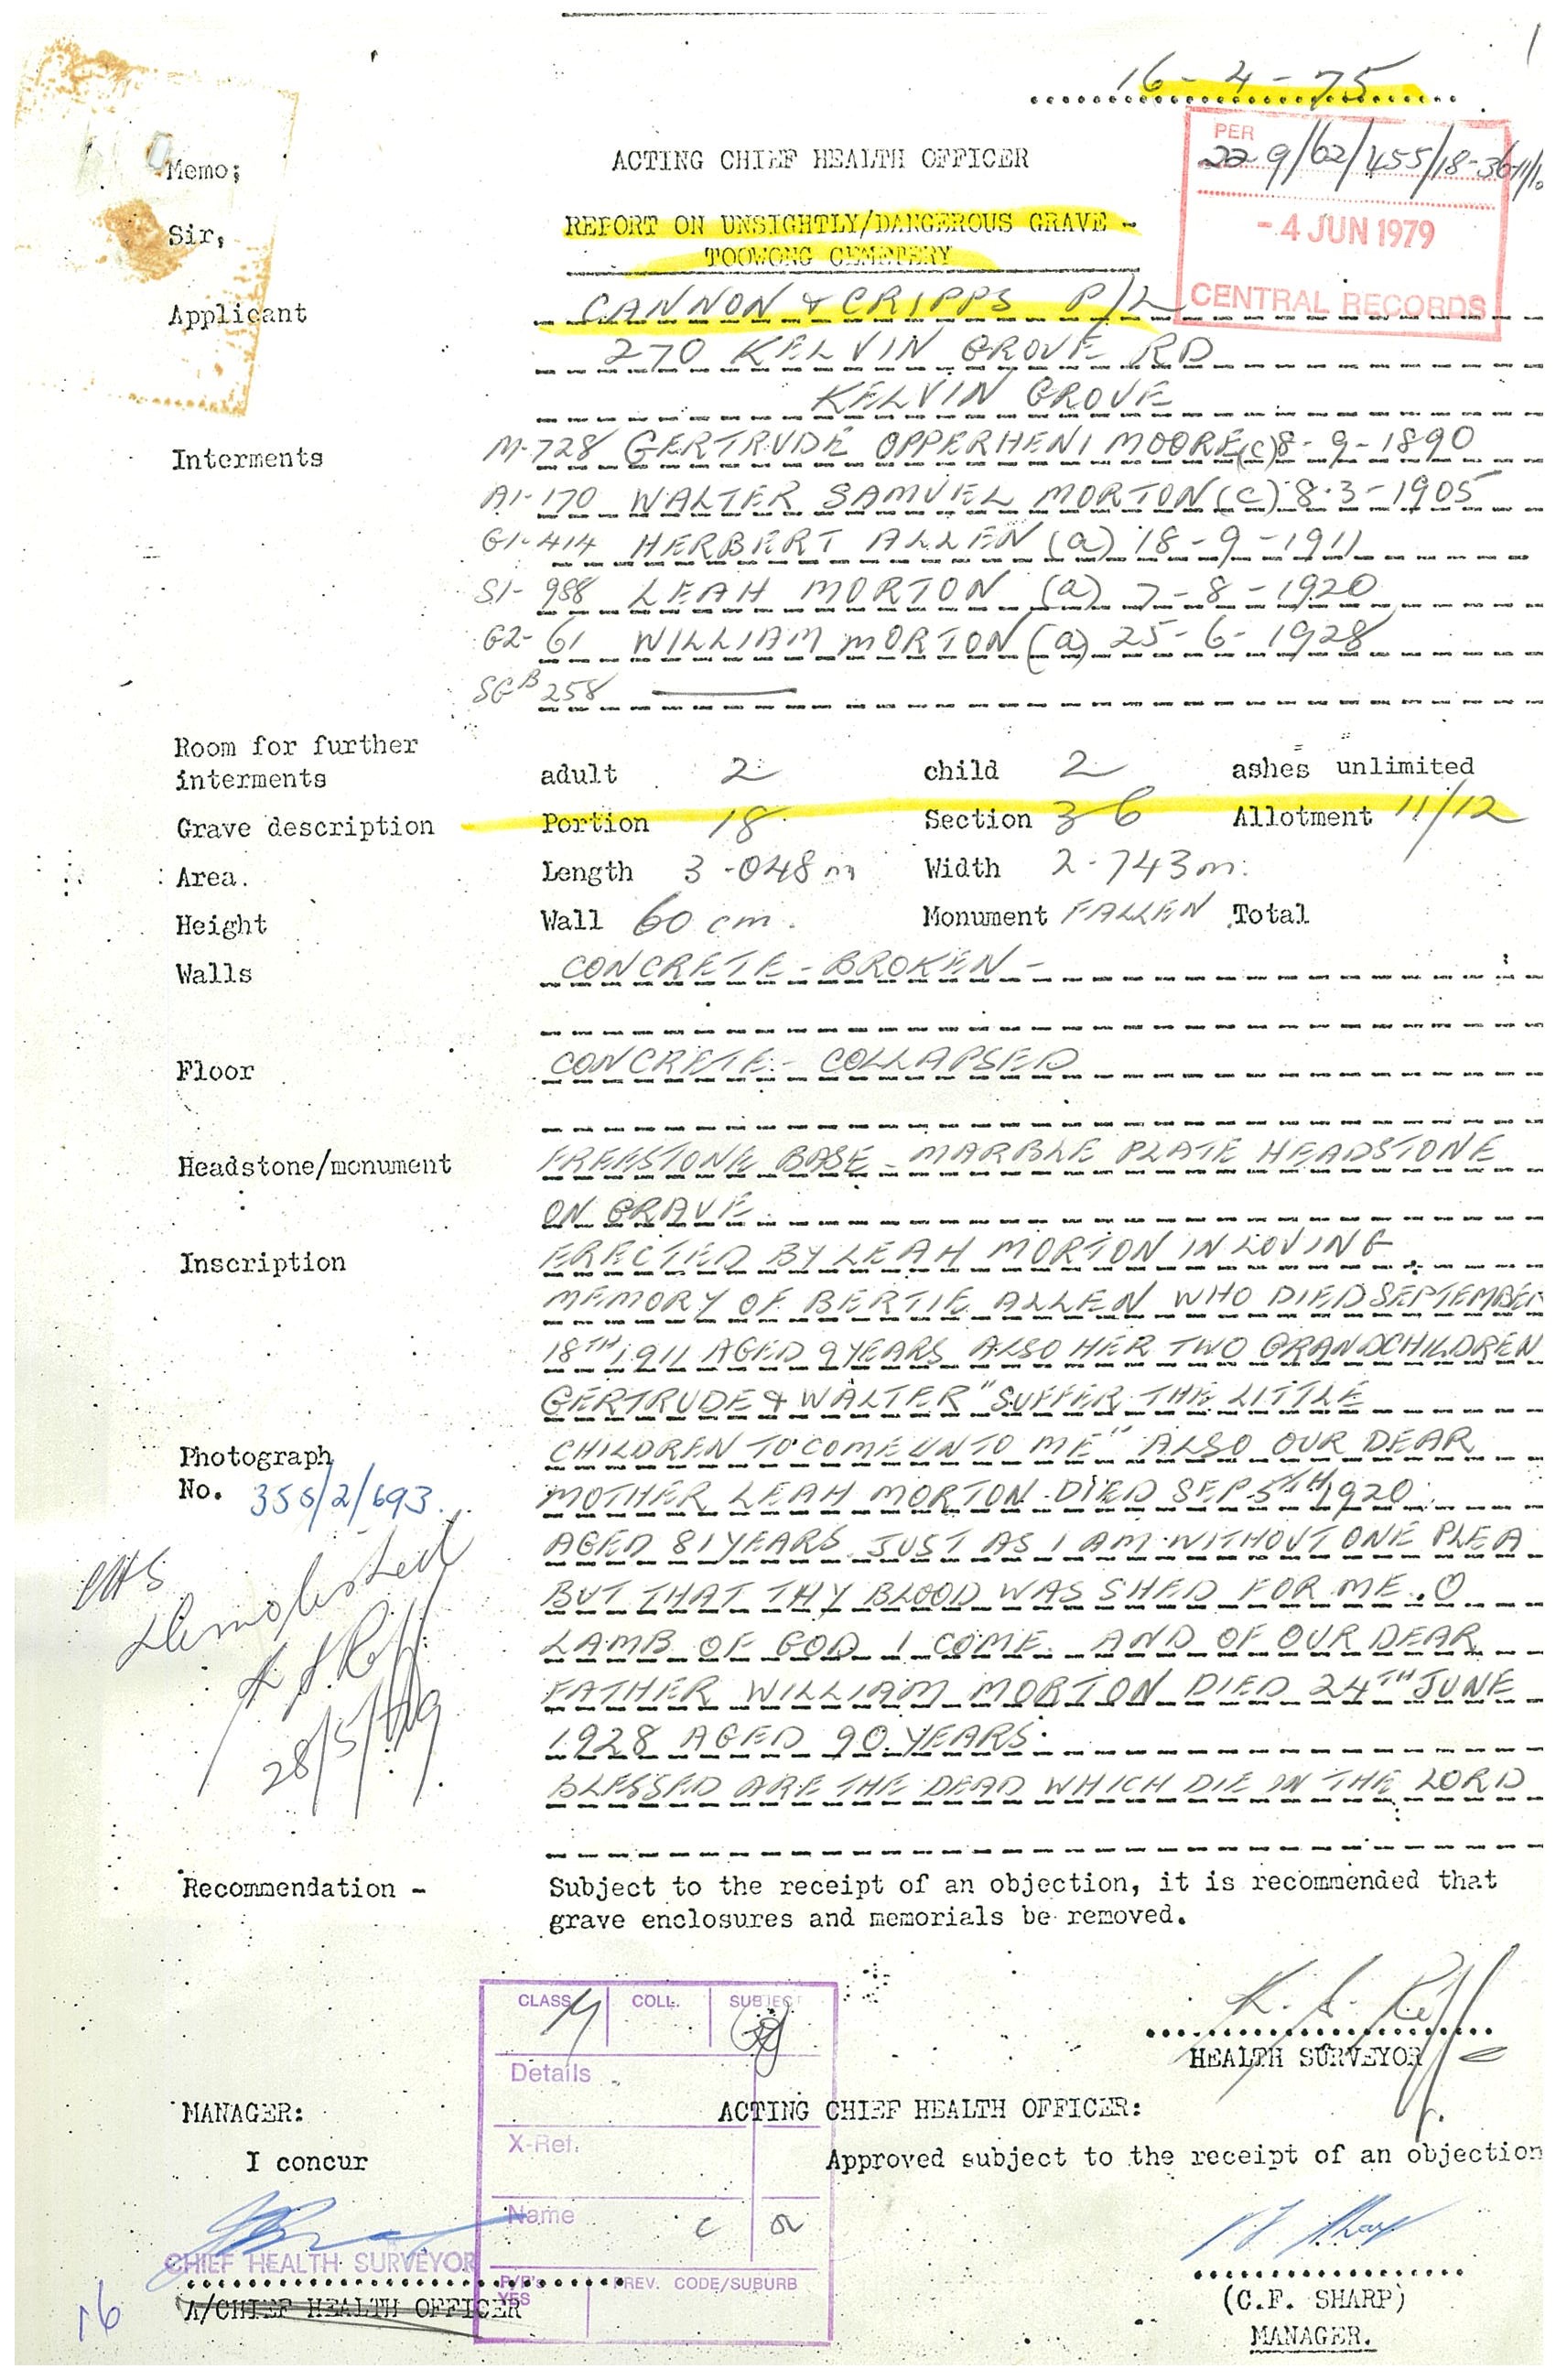 16-4-75
PER
229/62/455/18-36-11/12
- 4 JUN 1979
CENTRAL RECORDS
ACTING CHIEF HEALTH OFFICER
Memo;
Sir,
REPORT ON UNSIGHTLY/DANGEROUS GRAVE -
TOOWONG CEMETERY
Applicant CANNON & CRIPPS P/L
270 KELVIN GROVE RD
KELVIN GROVE
Interments M-728 GERTRUDE OPPERHENI MOORE (c) 8-9-1890
A1-170 WALTER SAMUEL MORTON (c) 8-3-1905
G1-414 HERBERT ALLEN (a) 18-9-1911
S1-988 LEAH MORTON (a) 7-8-1920
G2-61 WILLIAM MORTON (a) 25-6-1928
SGB 258 ———
Room for further
interments adult 2 child 2 ashes unlimited
Grave description Portion 18 Section 36 Allotment 11/12
Area. Length 3.048m Width 2.743m.
Height Wall 60 cm. Monument FALLEN Total
Walls CONCRETE - BROKEN -
Floor CONCRETE - COLLAPSED
Headstone/monument FREESTONE BASE - MARBLE PLATE HEADSTONE
ON GRAVE.
Inscription ERECTED BY LEAH MORTON IN LOVING
MEMORY OF BERTIE ALLEN WHO DIED SEPTEMBER
18TH 1911 AGED 9 YEARS ALSO HER TWO GRANDCHILDREN
GERTRUDE & WALTER "SUFFER THE LITTLE
CHILDREN TO COME UNTO ME" ALSO OUR DEAR
MOTHER LEAH MORTON DIED SEP 5TH 1920
AGED 81 YEARS JUST AS I AM WITHOUT ONE PLEA
BUT THAT THY BLOOD WAS SHED FOR ME. O
LAMB OF GOD I COME. AND OF OUR DEAR
FATHER WILLIAM MORTON DIED 24TH JUNE
1928 AGED 90 YEARS.
BLESSED ARE THE DEAD WHICH DIE IN THE LORD
Photograph
No. 355/2/693.
Demolished
28/5/79
Recommendation - Subject to the receipt of an objection, it is recommended that
grave enclosures and memorials be removed.
HEALTH SURVEYOR
CLASS COLL. SUBJECT
Details
X-Ref.
Name
PREV. CODE/SUBURB
YES
MANAGER: ACTING CHIEF HEALTH OFFICER:
I concur Approved subject to the receipt of an objection
CHIEF HEALTH SURVEYOR
A/CHIEF HEALTH OFFICER
(C.F. SHARP)
MANAGER.